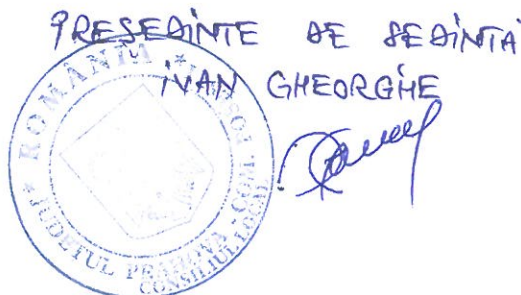 PREŞEDINTE DE ŞEDINTA
IVAN GHEORGHE
* ROMÂNIA *
* JUDEŢUL PRAHOVA - COM
CONSILIUL LOCAL